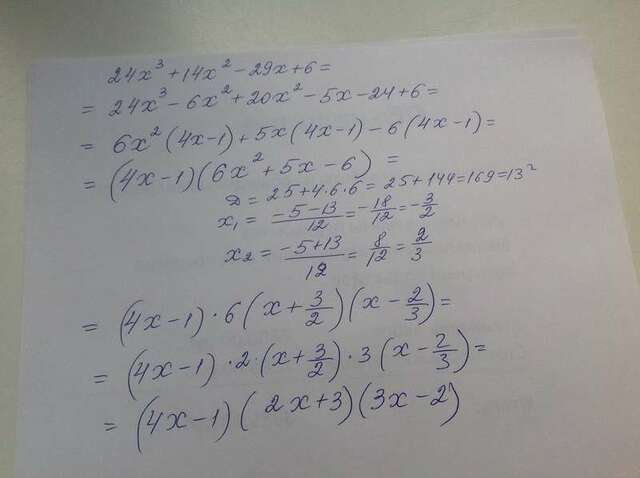 24x³ + 14x² - 29x + 6 =
= 24x³ - 6x² + 20x² - 5x - 24 + 6 =
= 6x² (4x-1) + 5x (4x-1) - 6 (4x-1) =
= (4x-1)(6x² + 5x - 6) =
D = 25 + 4·6·6 = 25 + 144 = 169 = 13²
x₁ = (-5-13)/12 = -18/12 = -3/2
x₂ = (-5+13)/12 = 8/12 = 2/3
= (4x-1)·6(x + 3/2)(x - 2/3) =
= (4x-1)·2·(x + 3/2)·3(x - 2/3) =
= (4x-1)(2x+3)(3x-2)